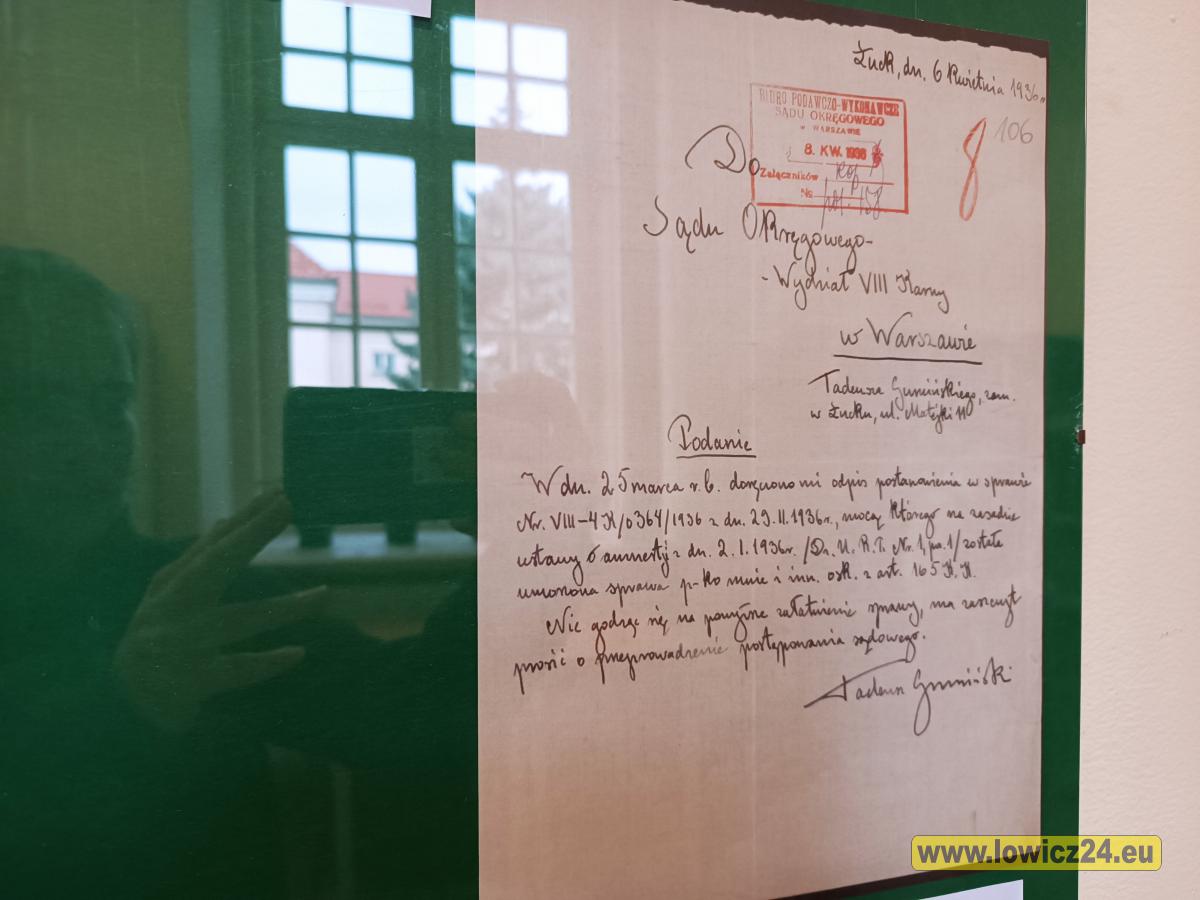 Łuck, dn. 6 kwietnia 1936 r.
BIURO PODAWCZO-WYKONAWCZE
SĄDU OKRĘGOWEGO
w WARSZAWIE
8. KW. 1936
Załączników
№
8
106
Do
Sądu Okręgowego-
-Wydział VIII Karny
w Warszawie
Tadeusza Gumińskiego, zam.
w Łucku, ul. Matejki 11
Podanie
W dn. 25 marca r.b. doręczono mi odpis postanowienia w sprawie
Nr. VIII-4K/0364/1936 z dn. 29.II.1936r., mocą którego na zasadzie
ustawy o amnestji z dn. 2.I.1936r. /Dz.U.R.P. Nr.1, po.1/ została
umorzona sprawa p-ko mnie i inn. osk. z art. 165 K.K.
Nie godząc się na powyższe załatwienie sprawy, mam zaszczyt
prosić o przeprowadzenie postępowania sądowego.
Tadeusz Gumiński
www.lowicz24.eu